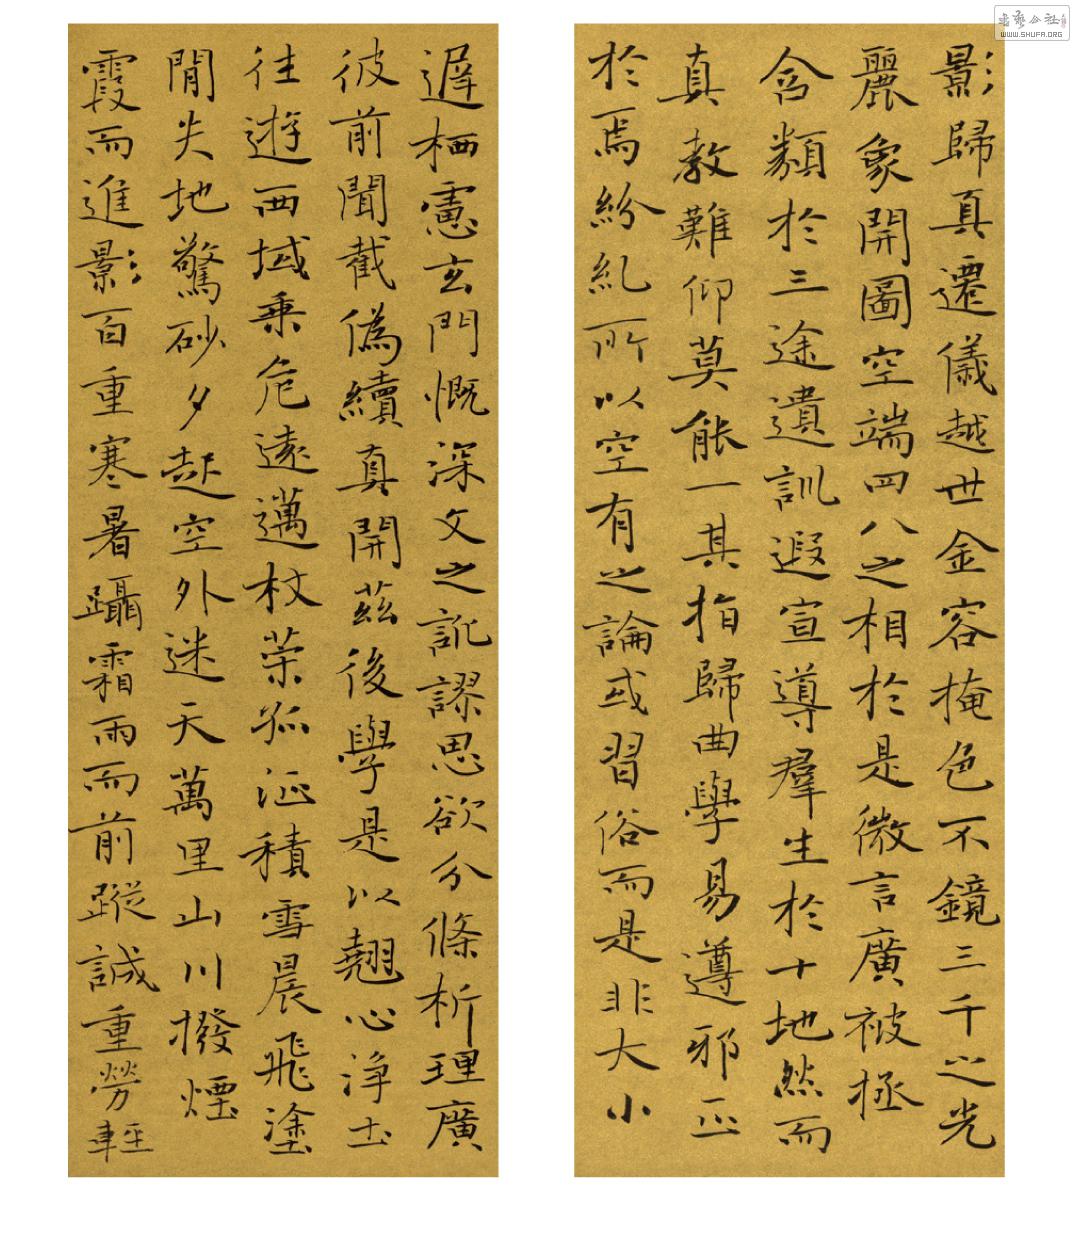 影歸真遷儀越世金容掩色不鏡三千之光
麗象開圖空端四八之相於是微言廣被拯
含類於三途遺訓遐宣導羣生於十地然而
真教難仰莫能一其指歸曲學易遵邪正
於焉紛糺所以空有之論或習俗而是非大小
遲栖慮玄門慨深文之訛謬思欲分條析理廣
彼前聞截偽續真開茲後學是以翹心淨土
往遊西域乘危遠邁杖策孤征積雪晨飛塗
閒失地驚砂夕起空外迷天萬里山川撥煙
霞而進影百重寒暑躡霜雨而前蹤誠重勞輕
書藝公社
WWW.SHUFA.ORG